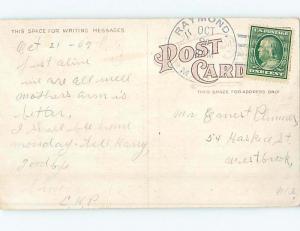 THIS SPACE FOR WRITING MESSAGES
Oct 21 - 09
Just alive
we are all well
mothers arm is
better,
I shall be home
monday - tell Harry
Good by
RAYMOND
OCT
POST
CARD
THIS SPACE FOR ADDRESS ONLY
Mr Earnest
54 Haskell St
Westbrook,
Me